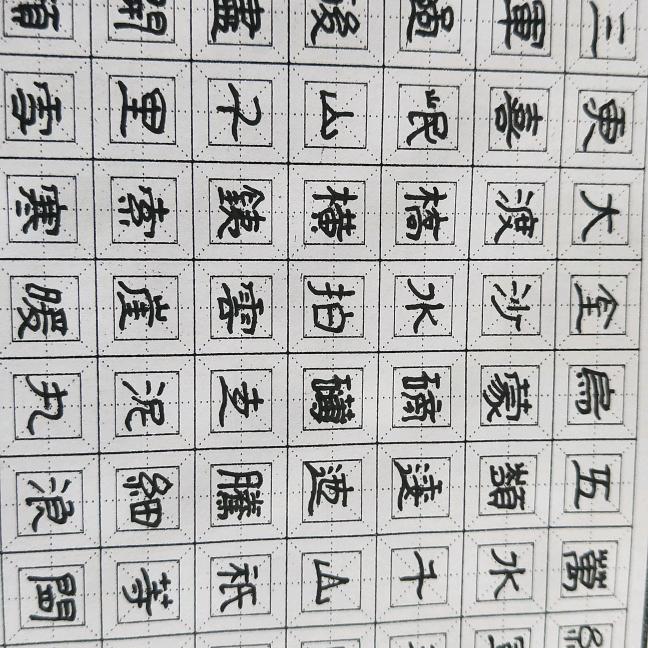 萬水千山祇等閒
五嶺逶迤騰細浪
烏蒙磅礴走泥丸
金沙水拍雲崖暖
大渡橋橫鐵索寒
更喜岷山千里雪
三軍過後盡開顏